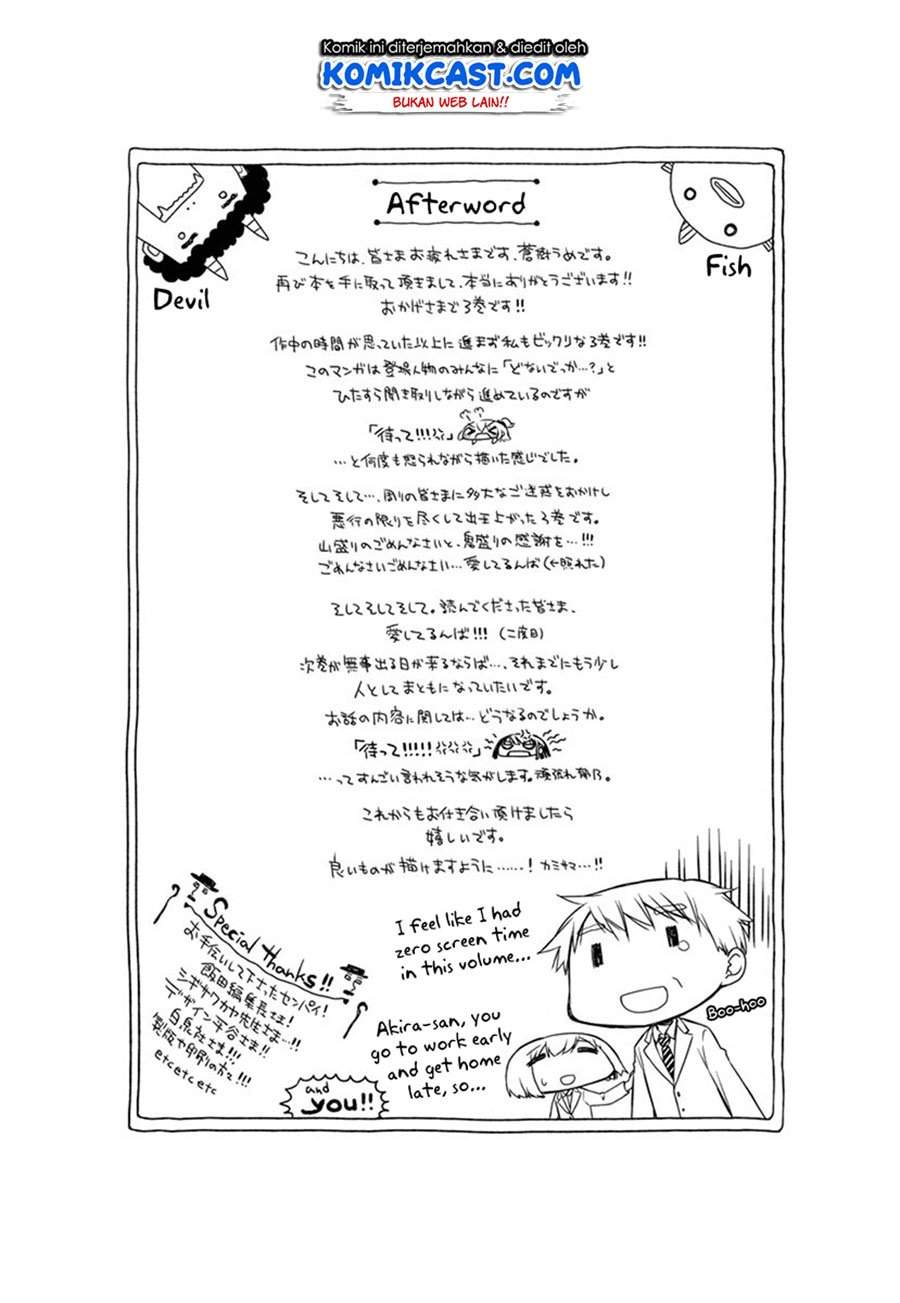 Komik ini diterjemahkan & diedit oleh
KOMIKCAST.COM
BUKAN WEB LAIN!!
Afterword
Devil
Fish
こんにちは、皆さまお疲れさまです、蒼樹うめです。
再び本を手に取って頂きまして、本当にありがとうございます!!
おかげさまで3巻です!!
作中の時間が思っていた以上に進まず私もビックリな3巻です!!
このマンガは登場人物のみんなに「どないでっか…?」と
ひたすら聞き取りしながら進めているのですが
「待って!!!」
…と何度も怒られながら描いた感じでした。
そしてそして…、周りの皆さまに多大なご迷惑をおかけし
悪行の限りを尽くして出来上がった3巻です。
山盛りのごめんなさいと、鬼盛りの感謝を…!!!
ごめんなさいごめんなさい…愛してるんば(←照れた)
そしてそしてそして。読んでくださった皆さま、
愛してるんば!!!(二度目)
次巻が無事出る日が来るならば…、それまでにもう少し
人としてまともになっていたいです。
お話の内容に関しては…どうなるのでしょうか。
「待って!!!!!」
…ってすんごい言われそうな気がします。頑張れ
これからもお付き合い頂けましたら
嬉しいです。
良いものが描けますように……!カミサマ…!!
Special Thanks!!
お手伝いして下さったセンパイ!
飯田編集長さま!
シギサワカヤ先生さま…!!
デザイン平谷さま!!
白泉社さま!!!
製版や印刷の方々!!!
etcetcetc
and
you!!
I feel like I had
zero screen time
in this volume...
Boo-hoo
Akira-san, you
go to work early
and get home
late, so...